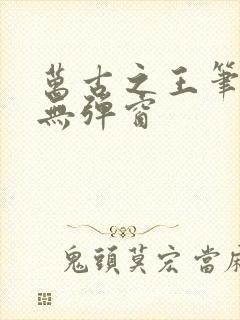 萬古之王筆
無彈窗
鬼頭莫宏當